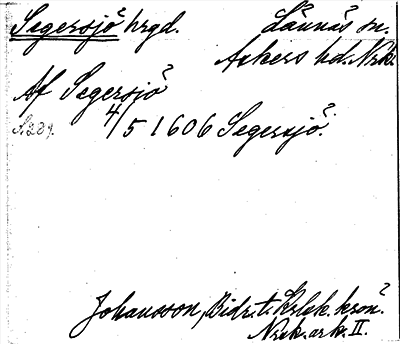 Segersjö hrgd. Lännäs sn.
Askers hd. Nrk.
Af Segersjö
S. 289. 4/5 1606 Segersjö.
Johansson, Bidr. t. Krlek. krön.
Nrk. ark. II.